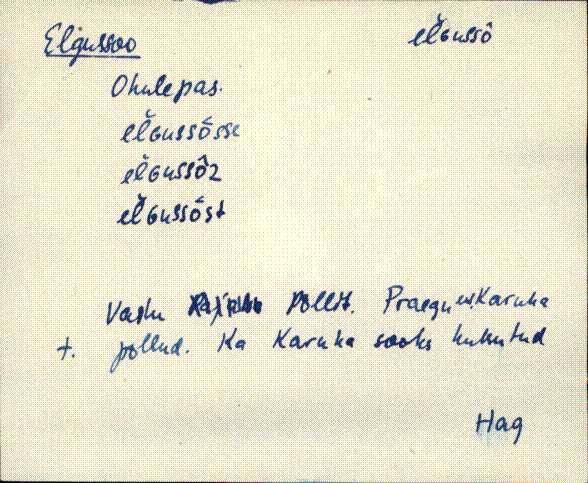 Elgussoo elGussô
Ohulepas.
elGussôsse
elGussôz
elGussôst
Vastu põllit. Praegu Karuka
t. põllud. Ka Karuka sooks kutsutud
Hag